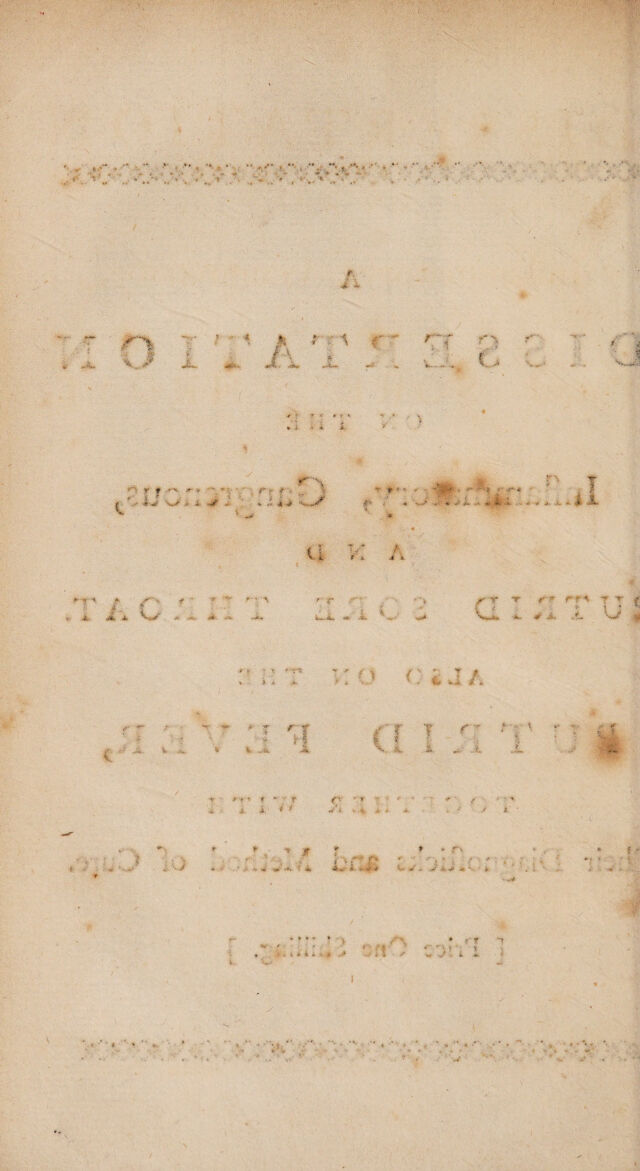 A
DISSERTATION
ON THE
Inflammatory, Gangrenous,
AND
PUTRID SORE THROAT.
ALSO ON THE
PUTRID FEVER,
TOGETHER WITH
Their Diagnoſticks and Method of Cure.
[ Price One Shilling. ]